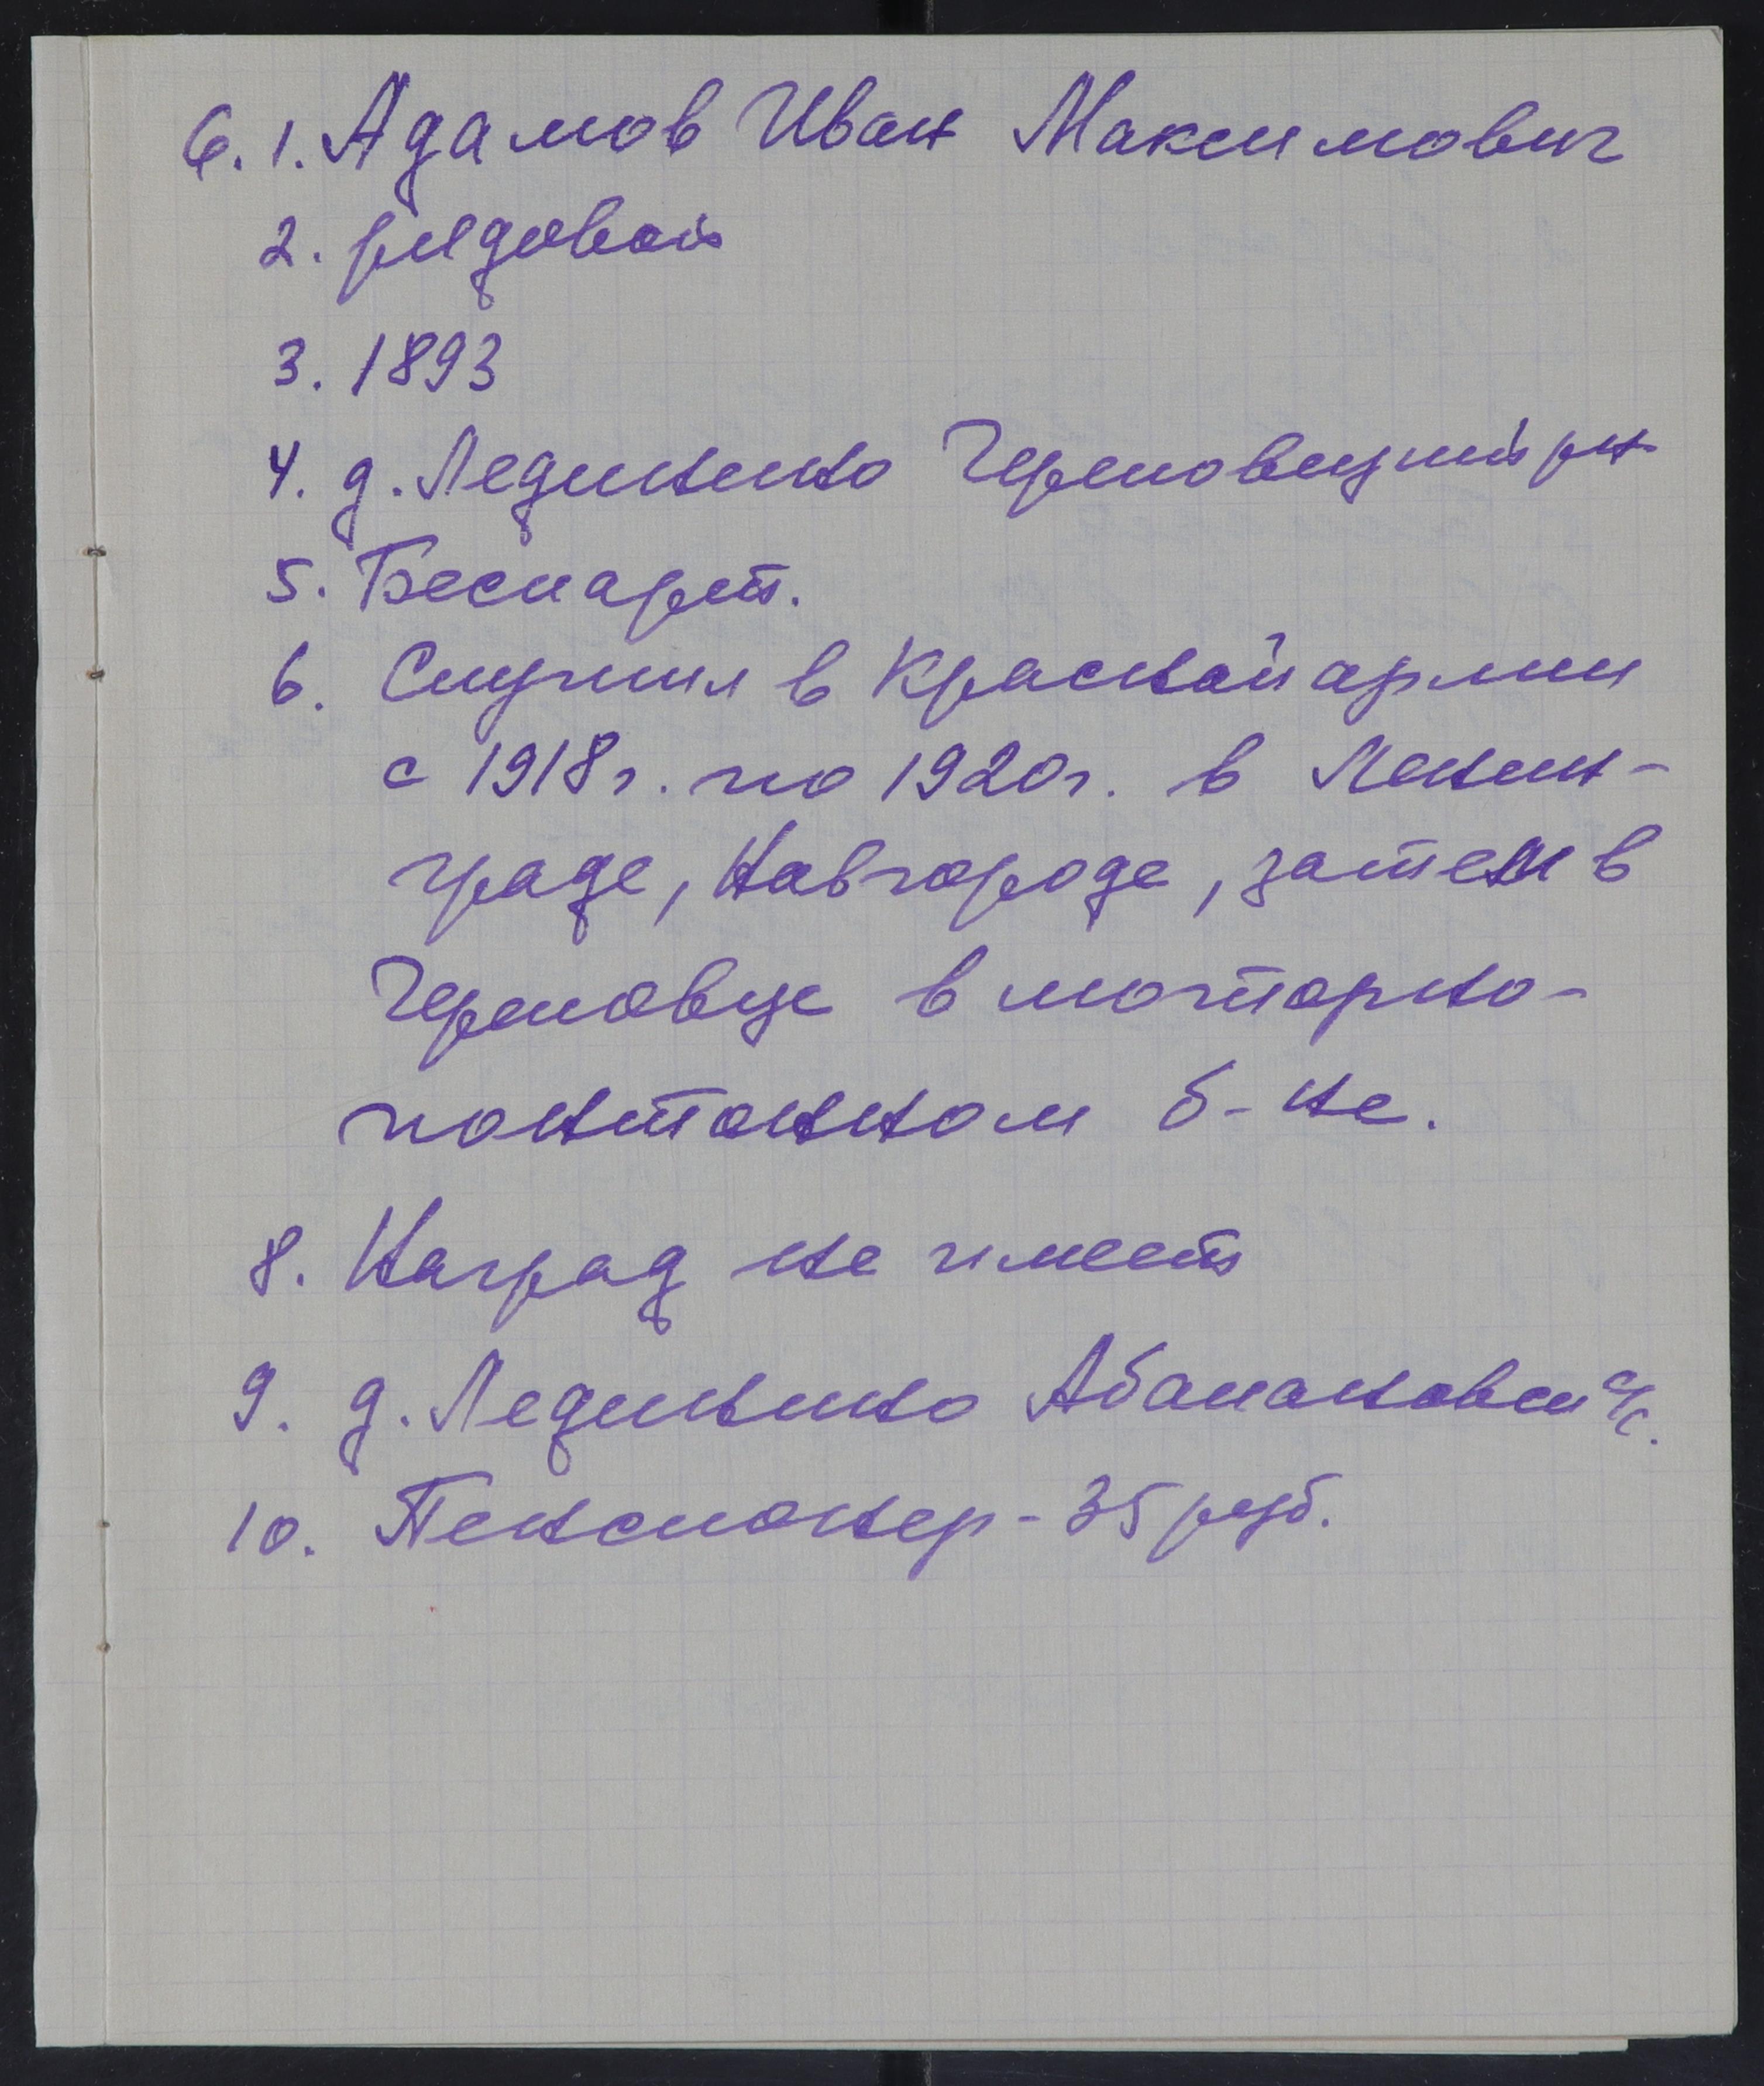 6. 1. Адамов Иван Максимович
2. рядовой
3. 1893
4. д. Лединино Череповецкий р-н
5. Беспарт.
6. Служил в Красной армии
с 1918 г. по 1920 г. в Ленин-
граде, Новгороде, затем в
Череповце в моторно-
понтонном б-не.
8. Наград не имеет
9. д. Лединино Абакановск с/с.
10. Пенсионер - 35 руб.